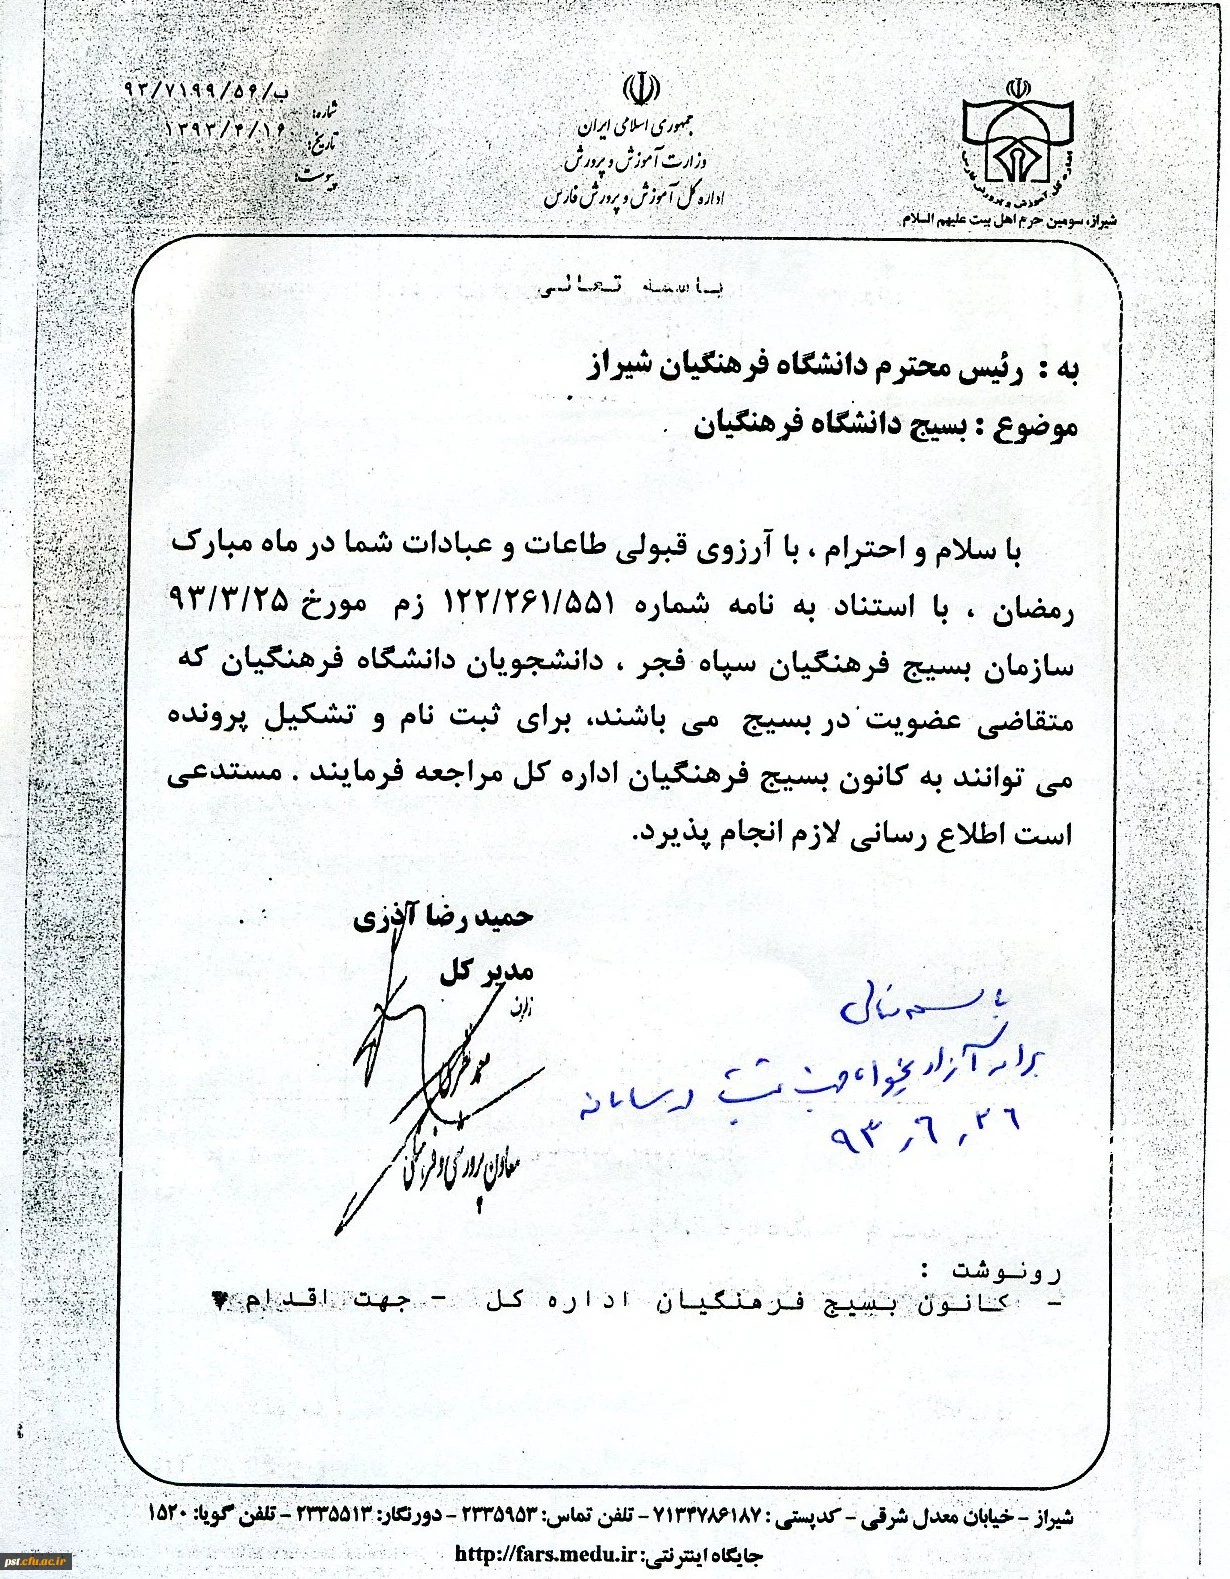 شماره: ب/۹۳/۷۱۹۹/۵۶
تاریخ: ۱۳۹۳/۴/۱۶
پیوست:
جمهوری اسلامی ایران
وزارت آموزش و پرورش
اداره کل آموزش و پرورش فارس
اداره کل آموزش و پرورش فارس
شیراز، سومین حرم اهل بیت علیهم السلام
باسمه تعالی
به : رئیس محترم دانشگاه فرهنگیان شیراز
موضوع : بسیج دانشگاه فرهنگیان
با سلام و احترام ، با آرزوی قبولی طاعات و عبادات شما در ماه مبارک
رمضان ، با استناد به نامه شماره ۱۲۲/۲۶۱/۵۵۱ زم مورخ ۹۳/۳/۲۵
سازمان بسیج فرهنگیان سپاه فجر ، دانشجویان دانشگاه فرهنگیان که
متقاضی عضویت در بسیج می باشند، برای ثبت نام و تشکیل پرونده
می توانند به کانون بسیج فرهنگیان اداره کل مراجعه فرمایند . مستدعی
است اطلاع رسانی لازم انجام پذیرد.
حمید رضا آذری
مدیر کل
از طرف
معاون پرورشی و فرهنگی
باسمه تعالی
برادر آزادیخواه جهت ثبت در سامانه
۹۳٫۶٫۲۶
رونوشت :
- کانون بسیج فرهنگیان اداره کل - جهت اقدام
شیراز - خیابان معدل شرقی - کدپستی : ۷۱۳۴۷۸۶۱۸۷ - تلفن تماس: ۲۳۳۵۹۵۳ - دورنگار: ۲۳۳۵۵۱۳ - تلفن گویا: ۱۵۲۰
جایگاه اینترنتی: http://fars.medu.ir
pst.cfu.ac.ir